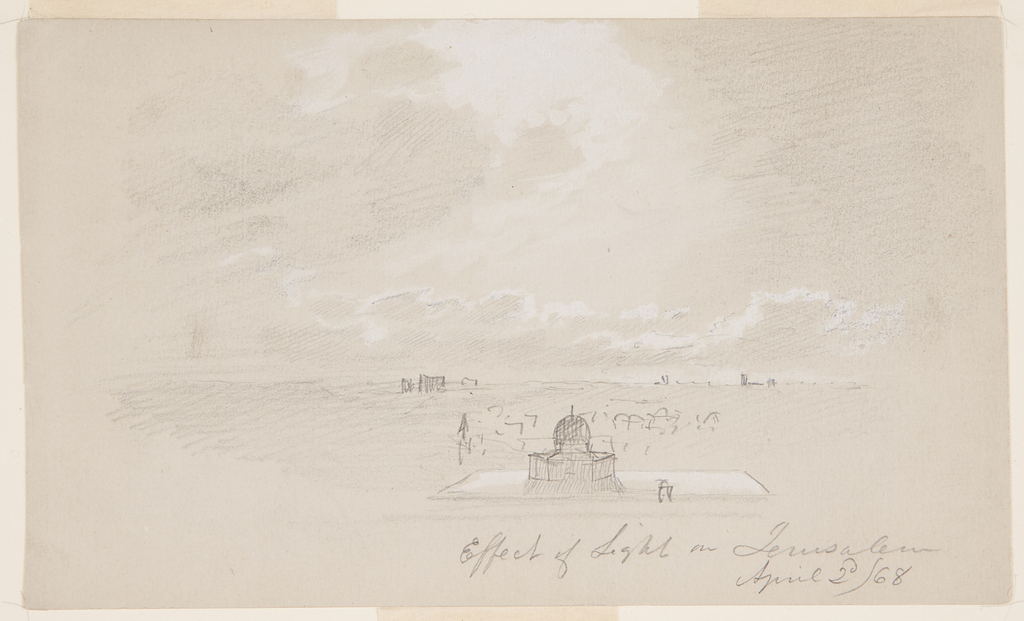 Effect of Light on Jerusalem
April 2d/68